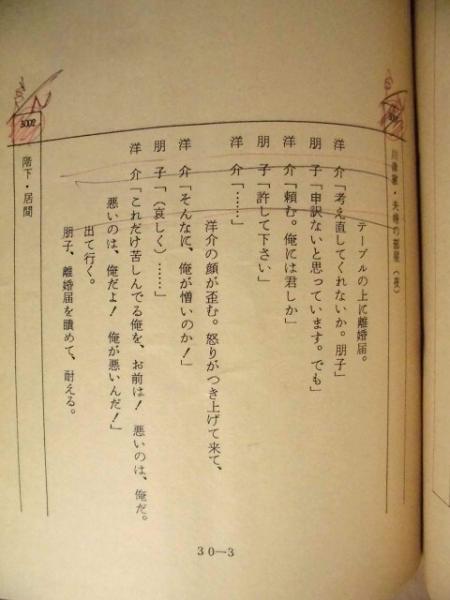 川像家・夫婦の部屋(夜)
テーブルの上に離婚届。
洋 介「考え直してくれないか。朋子」
朋 子「申訳ないと思っています。でも」
洋 介「頼む。俺には君しか」
朋 子「許して下さい」
洋 介「……」
洋介の顔が歪む。怒りがつき上げて来て、
洋 介「そんなに、俺が憎いのか!」
朋 子「(哀しく)……」
洋 介「これだけ苦しんでる俺を、お前は! 悪いのは、俺だ。
悪いのは、俺だよ! 俺が悪いんだ!」
出て行く。
朋子、離婚届を瞶めて、耐える。
3002
階下・居間
30―3